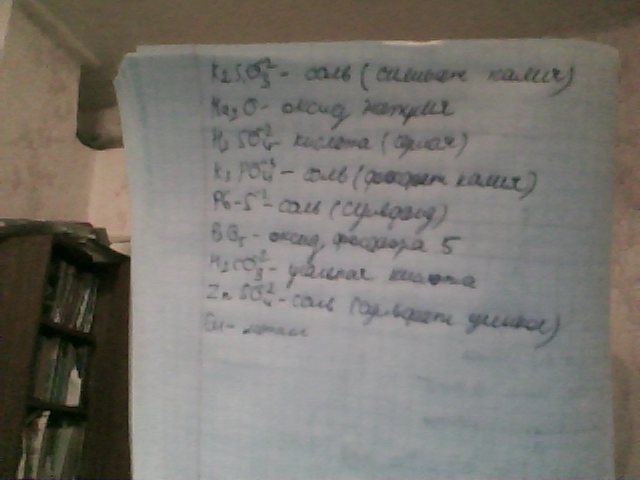 K2SiO3²- - соль (силикат калия)
Na2O - оксид натрия
H2SO4²- - кислота (серная)
K3PO4³- - соль (фосфат калия)
Pb-S²- - соль (сульфид)
- оксид фосфора 5
H2CO3²- - угольная кислота
ZnSO4²- - соль (сульфат цинка)
Cu - металл